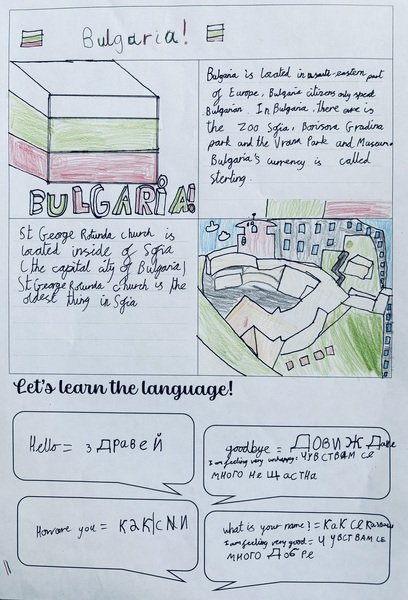 Bulgaria!
Bulgaria is located in south-eastern part
of Europe, Bulgaria citizens only speak
Bulgarian. In Bulgaria, there are is
the ZOO Sofia, Borisova Gradina
park and the Vrana Park and Museum
Bulgaria's currency is called
sterling.
BULGARIA!
St George Rotunda church is
located inside of Sofia
(the capital city of Bulgaria)
St George Rotunda church is the
oldest thing in Sofia
Let's learn the language!
Hello = здравей
goodbye = ДОВИЖДане
I am feeling very unhappy = ЧУВСТВАМ СЕ
МНОГО Не ЩАСТНА
How are you = КАК СИ
what is your name! = КаК се
I am feeling very good = ЧУВСТВАМ СЕ
МНОГО ДОБРЕ